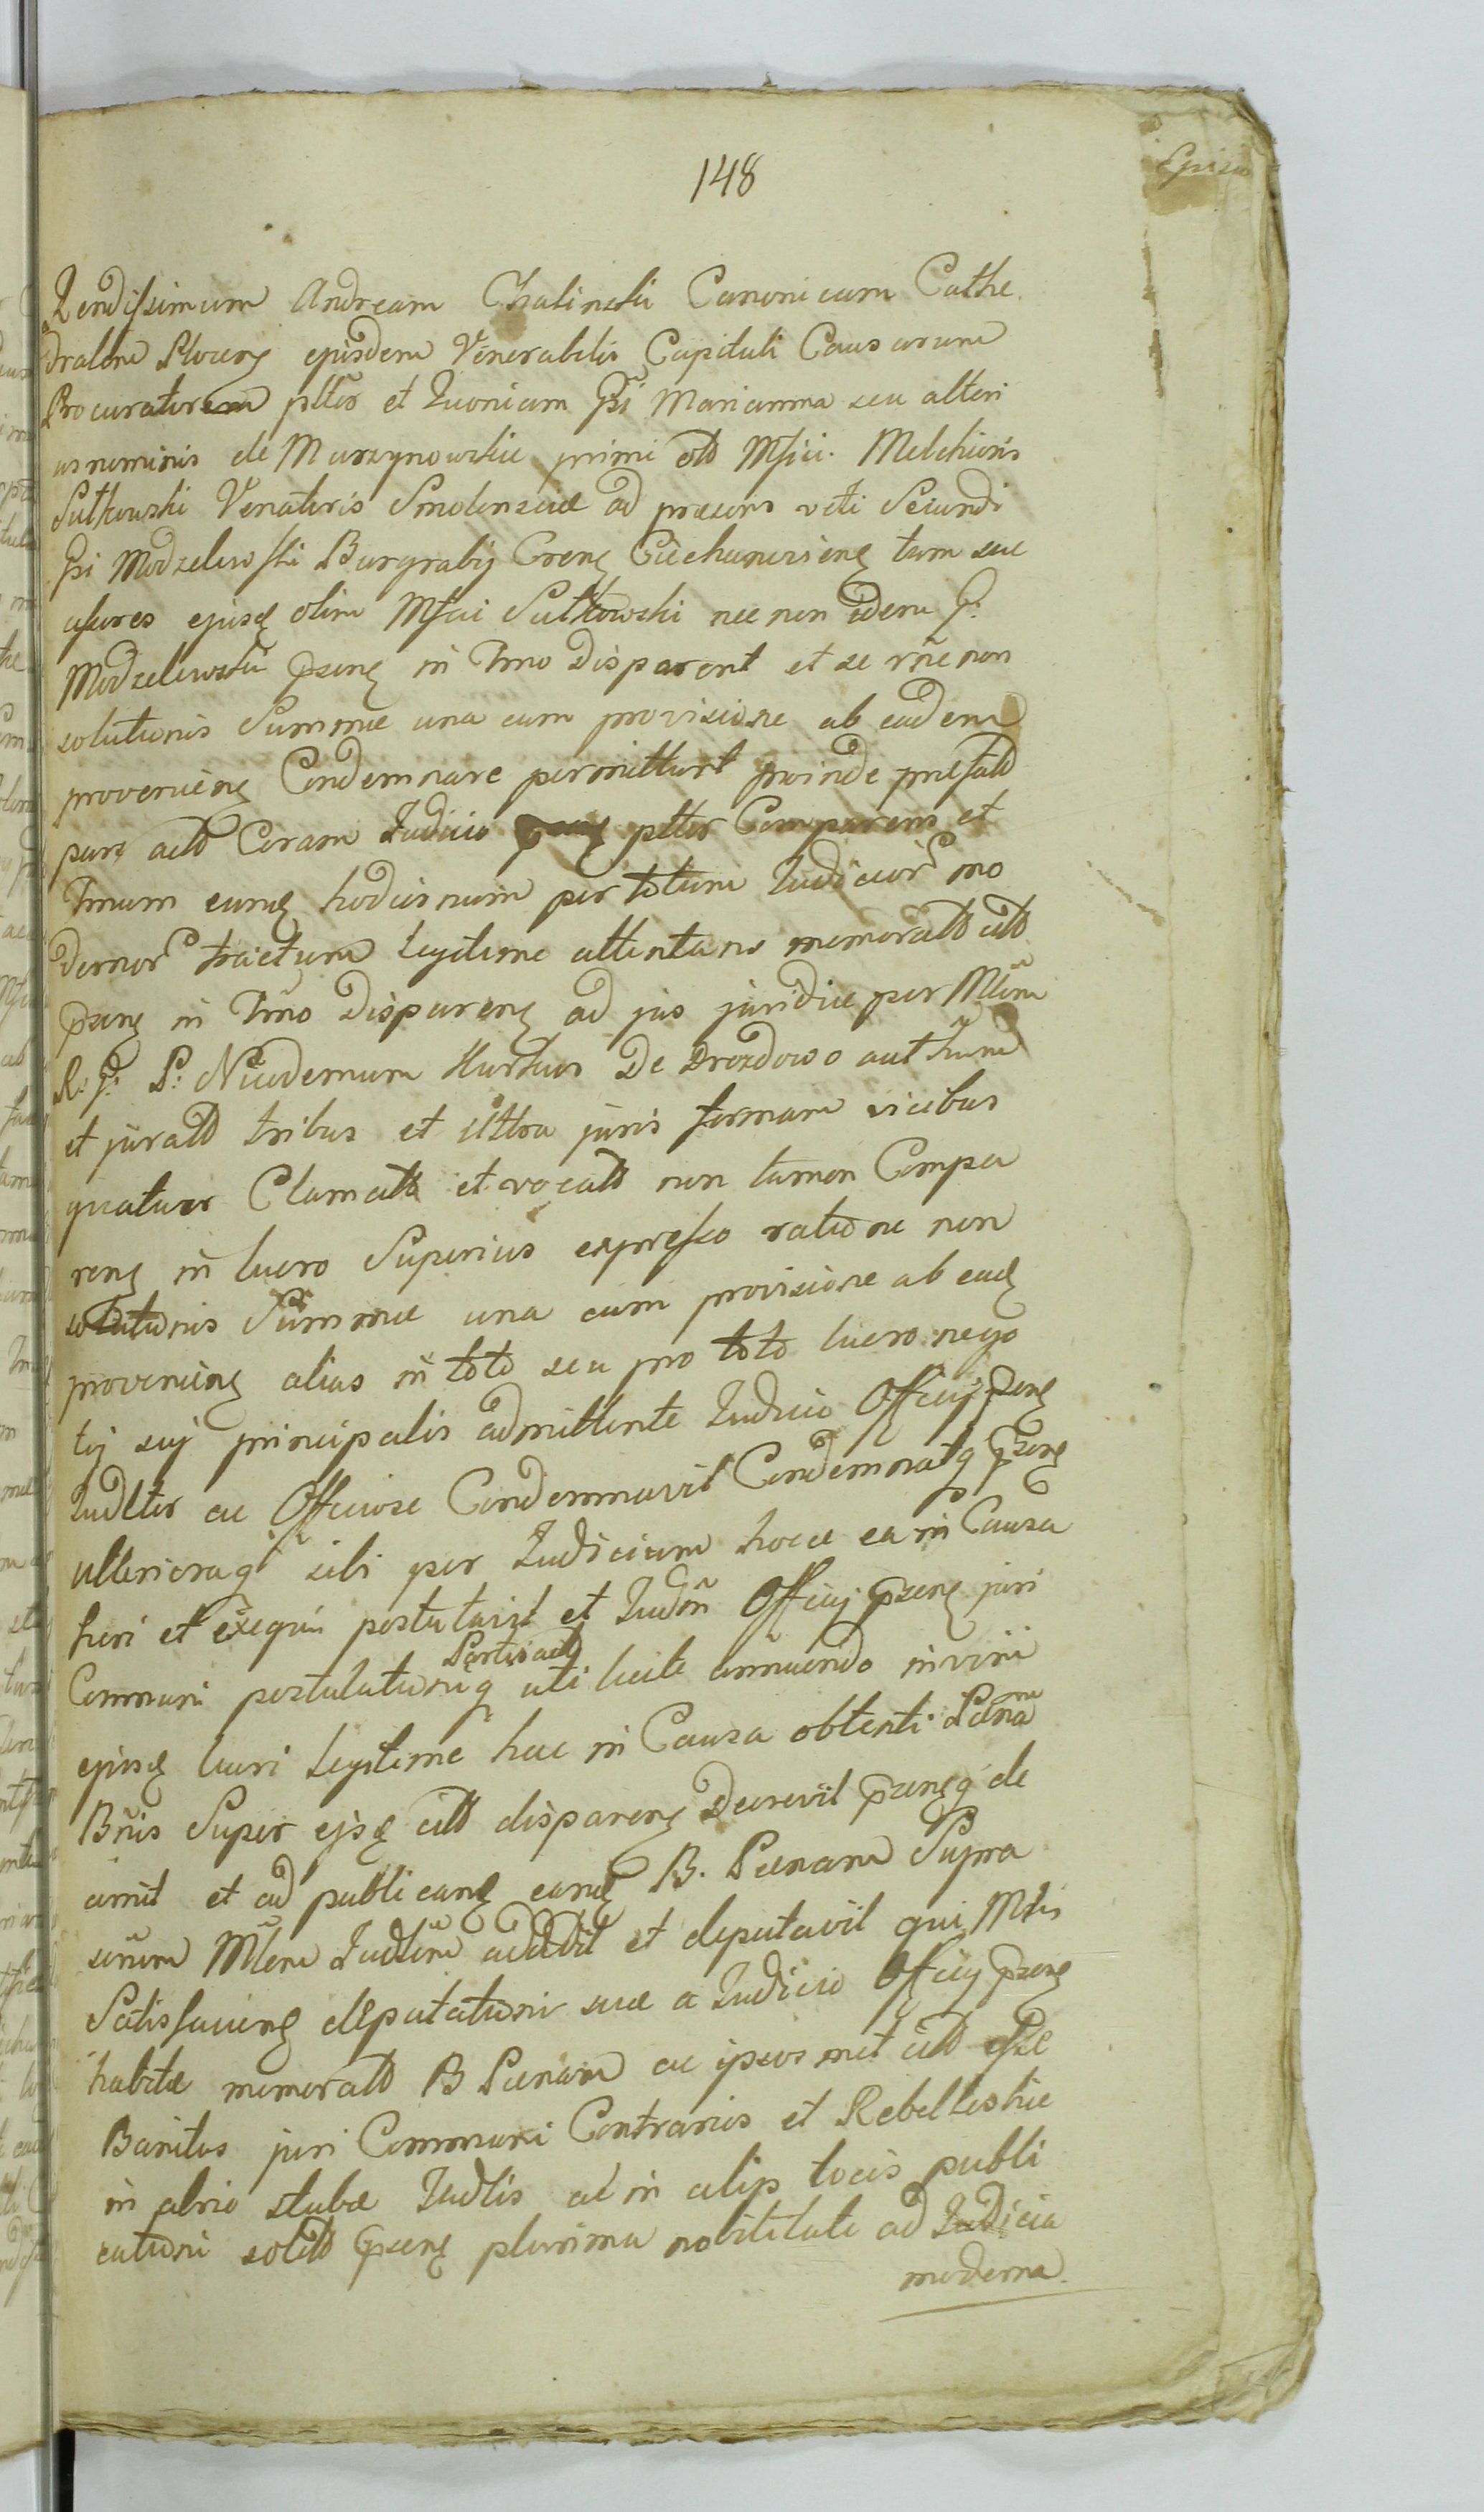 148
Rendissimum Andream Chalinski Canonicum Cathe
dralem Plocens ejusdem Venerabilis Capituli Causarum
Procuratorem pltēr et Quoniam Gsi Marianna seu alteri
us nominis de Murzynowskie primi olo Mfici Melchioris
Sutkowski Venatoris Smolenscæ ad præsens voti Secundi
Gsi Modzelewski Burgrabij Crens Ciechanoviens tam suc
cessores ejusd olim Mfici Sutkowski nec non idem G:
Modzelewski psens in Tmno disparent et se rñe non
solutionis Summæ una cum provisione ab eadem
proveniens Condemnare permittunt proinde præfato
pars acto Coram Judicio pltēr Comparens et
Tmnum eumq hodiernum per totum Judicior mo
dernor tractum legitime attentans memorato cito
psens in Tmno disparens ad jus juridice per Mlem
R: J: P: Nicodemum de Drozdowo auth
et jurato tribus et ultra juris formam vicibus
quatuor Clamato et vocato non tamen Compa
rens in lucro Superius expresso ratione non
solutionis Summæ una cum provisione ab ead
proveniens alias in toto seu pro toto lucro nego
tij sui principalis admittente Judicio Officij psens
Judltēr ac Officiose Condemnavit Condemnatq psens
ulterioraq sibi per Judicium hocce ea in Causa
fieri et exequi postulavit et Judm Officij psens juri
Communi postulationiq Partis act uti licite annuendo in vim
ejusd lucri legitime hac in Causa obtenti Pænam
Bnis Super ejsd cito disparens Decrevit psensq de
cernit et ad publicand eand B. Pænam Supra
scrum Mlem Judlem addidit et deputavit qui Mlis
Satisfaciens deputationi suæ a Judicio Officij psens
habitæ memorato B Pænam ac ipsos met cito esse
Banitos juri Communi Contrarios et Rebelles hic
in atrio stubæ Judlis ac in alijs locis publi
cationi solito psens plurima nobilitate ad Judicia
moderna